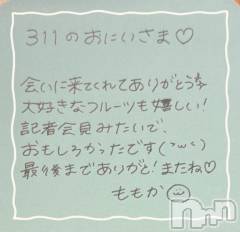 311のおにいさま♡
会いに来てくれてありがとう
大好きなフルーツも嬉しい!
記者会見みたいで、
おもしろかったです(つω<)
最後までありがと!またね♡
ももか